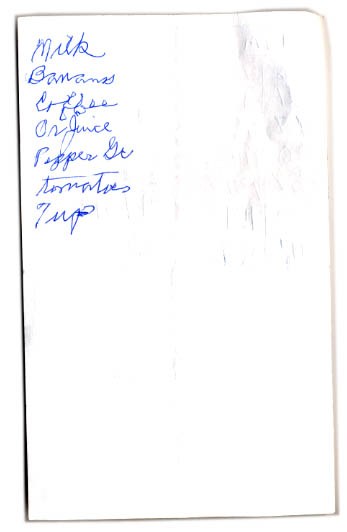 Milk
Bananas
Coffee
Or Juice
Pepper Gr
tomatoes
7 up